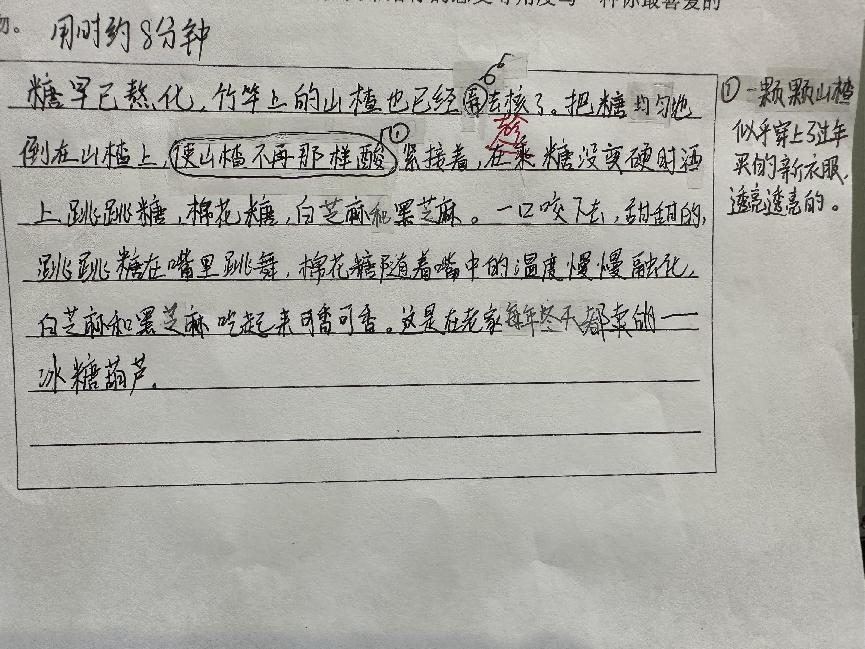 种你最喜爱的
物。
用时约8分钟
糖早已熬化,竹竿上的山楂也已经去核了。把糖均匀地
倒在山楂上,使山楂不再那样酸①紧接着,在糖没变硬时洒
上跳跳糖,棉花糖,白芝麻和黑芝麻。一口咬下去,甜甜的,
跳跳糖在嘴里跳舞,棉花糖随着嘴中的温度慢慢融化,
白芝麻和黑芝麻吃起来可香可香。这是在老家每年冬天都卖的——
冰糖葫芦。
①一颗颗山楂
似乎穿上了过年
买的新衣服,
透亮透亮的。